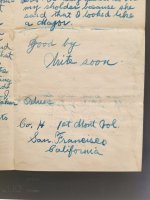 my sholder because she
said that I looked like
a Major.
Good by
Write soon.
Co. H 1st Mont Vol.
San. Francisco
California